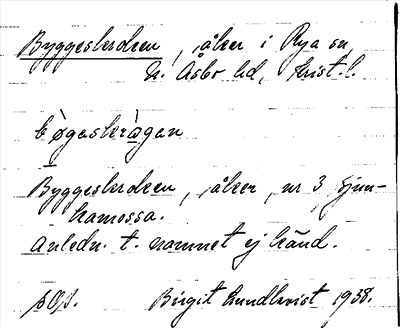 Byggeskroken, åker i Rya sn,
N. Åsbo hd, Krist. l.
bøgaskrågan
Byggeskroken, åker, nr 3, Ljun-
hamossa.
Anledn. t. namnet ej känd.
Birgit Lundkvist 1938.